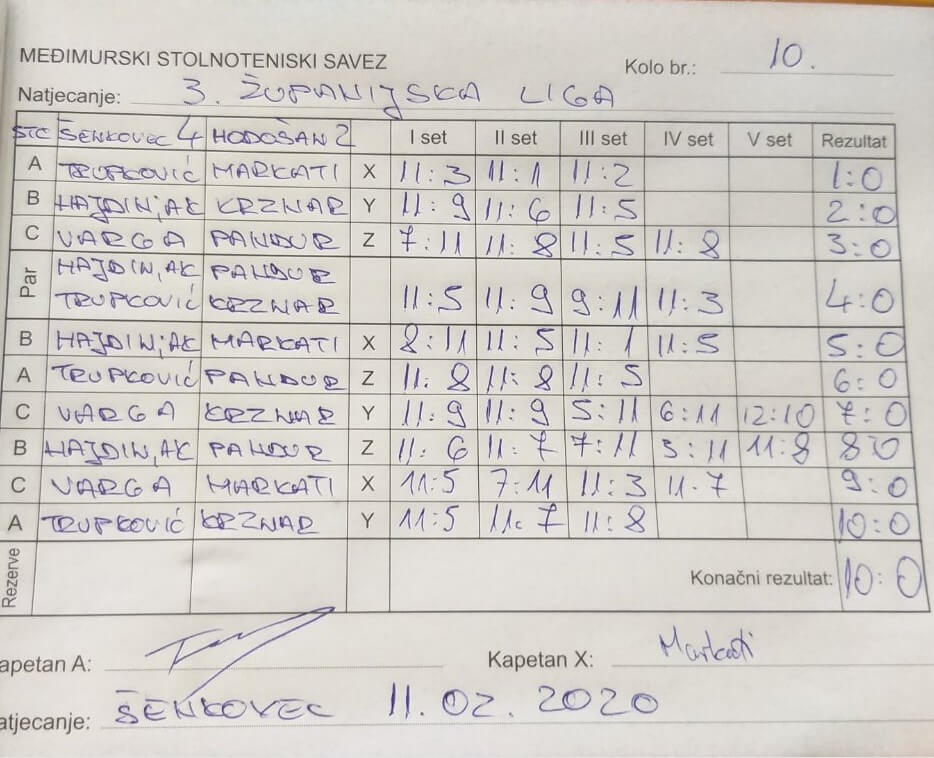 MEĐIMURSKI STOLNOTENISKI SAVEZ
Kolo br.: 10.
Natjecanje: 3. ŽUPANIJSKA LIGA
STC ŠENKOVEC 4 HODOŠAN 2 I set II set III set IV set V set Rezultat
A TRUPKOVIĆ MARKATI X 11:3 11:1 11:2 1:0
B HAJDINJAK KRZNAR Y 11:9 11:6 11:5 2:0
C VARGA PANDUR Z 7:11 11:8 11:5 11:8 3:0
Par HAJDINJAK PANDUR
TRUPKOVIĆ KRZNAR 11:5 11:9 9:11 11:3 4:0
B HAJDINJAK MARKATI X 8:11 11:5 11:1 11:5 5:0
A TRUPKOVIĆ PANDUR Z 11:8 11:8 11:5 6:0
C VARGA KRZNAR Y 11:9 11:9 5:11 6:11 12:10 7:0
B HAJDINJAK PANDUR Z 11:6 11:7 7:11 3:11 11:8 8:0
C VARGA MARKATI X 11:5 7:11 11:3 11-7 9:0
A TRUPKOVIĆ KRZNAR Y 11:5 11:7 11:8 10:0
Rezerve Konačni rezultat: 10:0
apetan A: Kapetan X: Markati
atjecanje: ŠENKOVEC 11.02.2020